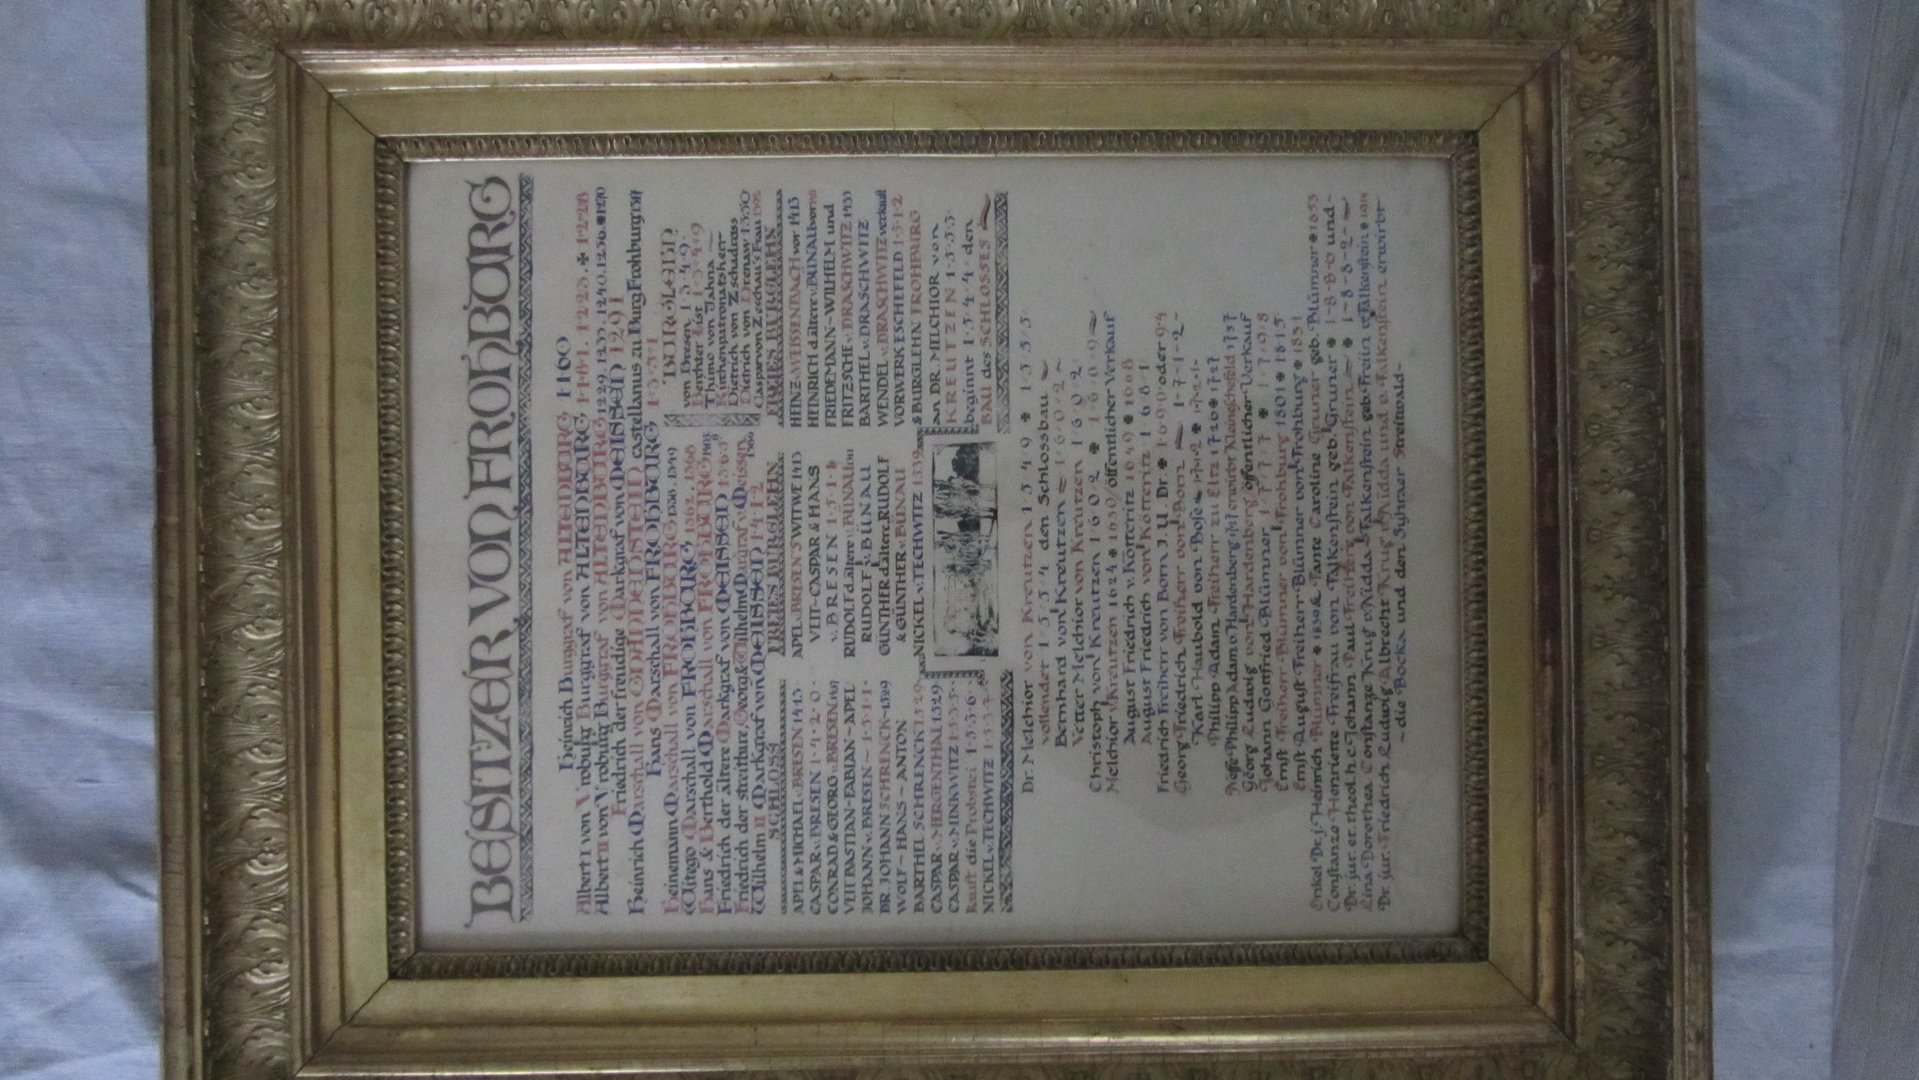 BESITZER VON FROHBURG
Heinrich Burggraf von ALTENBURG 1160
Albert I von Vroburg Burggraf von ALTENBURG 1181. 1223. ✠ 1228
Albert II von Vroburg Burggraf von ALTENBURG 1229. 1233. 1240. 1256. 1270
Friedrich der freudige Markgraf von MEISSEN 1291
Heinrich Marschall von GNANDENSTEIN castellanus zu Burg Frohburg
Hans Marschall von FROHBURG 1331
Heinemann Marschall von FROHBURG 1349
Witego Marschall von FROHBURG 1362. 1366
Hans & Berthold Marschall von FROHBURG
Friedrich der ältere Markgraf von MEISSEN
Friedrich der streitbare, Georg & Wilhelm Markgraf v. Meissen
Wilhelm II Markgraf von MEISSEN 1412
BURGLEHN
von Bresen 1349
Berchter List 1349
Thimo von Jahna
Kirchenpatronatsherr
Dietrich von Zschadrass
Dietrich von Drenaw 1350
Caspar von Zeschau's Frau
SCHLOSS
APEL & MICHAEL v. BRESEN 1413
CASPAR v. BRESEN 1420
CONRAD & GEORG v. BRESEN
VEIT BASTIAN-FABIAN-APEL
JOHANN v. BRESEN – 1511
DR. JOHANN SCHRENCK
WOLF – HANS – ANTON
BARTHEL SCHRENCK 1529
CASPAR v. MERGENTHAL 1529
CASPAR v. MINKWITZ 1535
kauft die Probstei 1536
NICKEL v. TECHWITZ
FREIES BURGLEHN
APEL v. BRESEN'S WITWE 1413
VEIT-CASPAR & HANS
v. BRESEN 1511
RUDOLF d. ältere v. BÜNAU
RUDOLF v. BÜNAU
GÜNTHER d. ältere, RUDOLF
& GÜNTHER v. BÜNAU
NICKEL v. TECHWITZ
FREIES BURGLEHN
HEINZ v. WEISSENBACH vor 1413
HEINRICH d. ältere v. BÜNAU
FRIEDEMANN-WILHELM und
FRITZSCHE v. DRASCHWITZ
BARTHEL v. DRASCHWITZ
WENDEL v. DRASCHWITZ verkauft
VORWERK ESCHEFELD
& BURGLEHN FROHBURG
an DR. MELCHIOR von
KREUTZEN 1533
beginnt 1544 den
BAU des SCHLOSSES
Dr. Melchior von Kreutzen 1549 ✠ 1555
vollendet 1554 den Schlossbau
Bernhard von Kreutzen 1602
Vetter Melchior von Kreutzen 1602
Christoph von Kreutzen 1602 ✠ 1609
Melchior v. Kreutzen 1624 ✠ 1630/öffentlicher Verkauf
August Friedrich v. Kötteritz 1649 ✠ 1668
August Friedrich von Kötteritz 1681
Friedrich Freiherr von Born J. U. Dr. ✠ 1690 oder
Georg Friedrich Freiherr von Born 1712
Karl Haubold von Bose 1712 ✠ 1721
Philipp Adam Freiherr zu Eltz 1726 ✠ 1727
Neffe Philipp Adam v. Hardenberg erwirbt Kleineschefeld 1737
Georg Ludwig von Hardenberg öffentlicher Verkauf
Johann Gottfried Blümner 1777 ✠ 1798
Ernst Freiherr Blümner von Frohburg 1801 ✠ 1815
Ernst August Freiherr Blümner von Frohburg ✠
Enkel Dr. j. Heinrich Blümner ✠ & Tante Caroline Gruner geb. Blümner
Constanze Henriette Freifrau von Falkenstein geb. Gruner ✠ 1880 und
Dr. jur. et theol. h. c. Johann Paul Freiherr von Falkenstein ✠ 1882
Lina Dorothea Constanze Krug v. Nidda & Falkenstein geb. Freiin v. Falkenstein
Dr. jur. Friedrich Ludwig Albrecht Krug v. Nidda und v. Falkenstein erwirbt
– die Bocka und den Syhraer Streitwald –